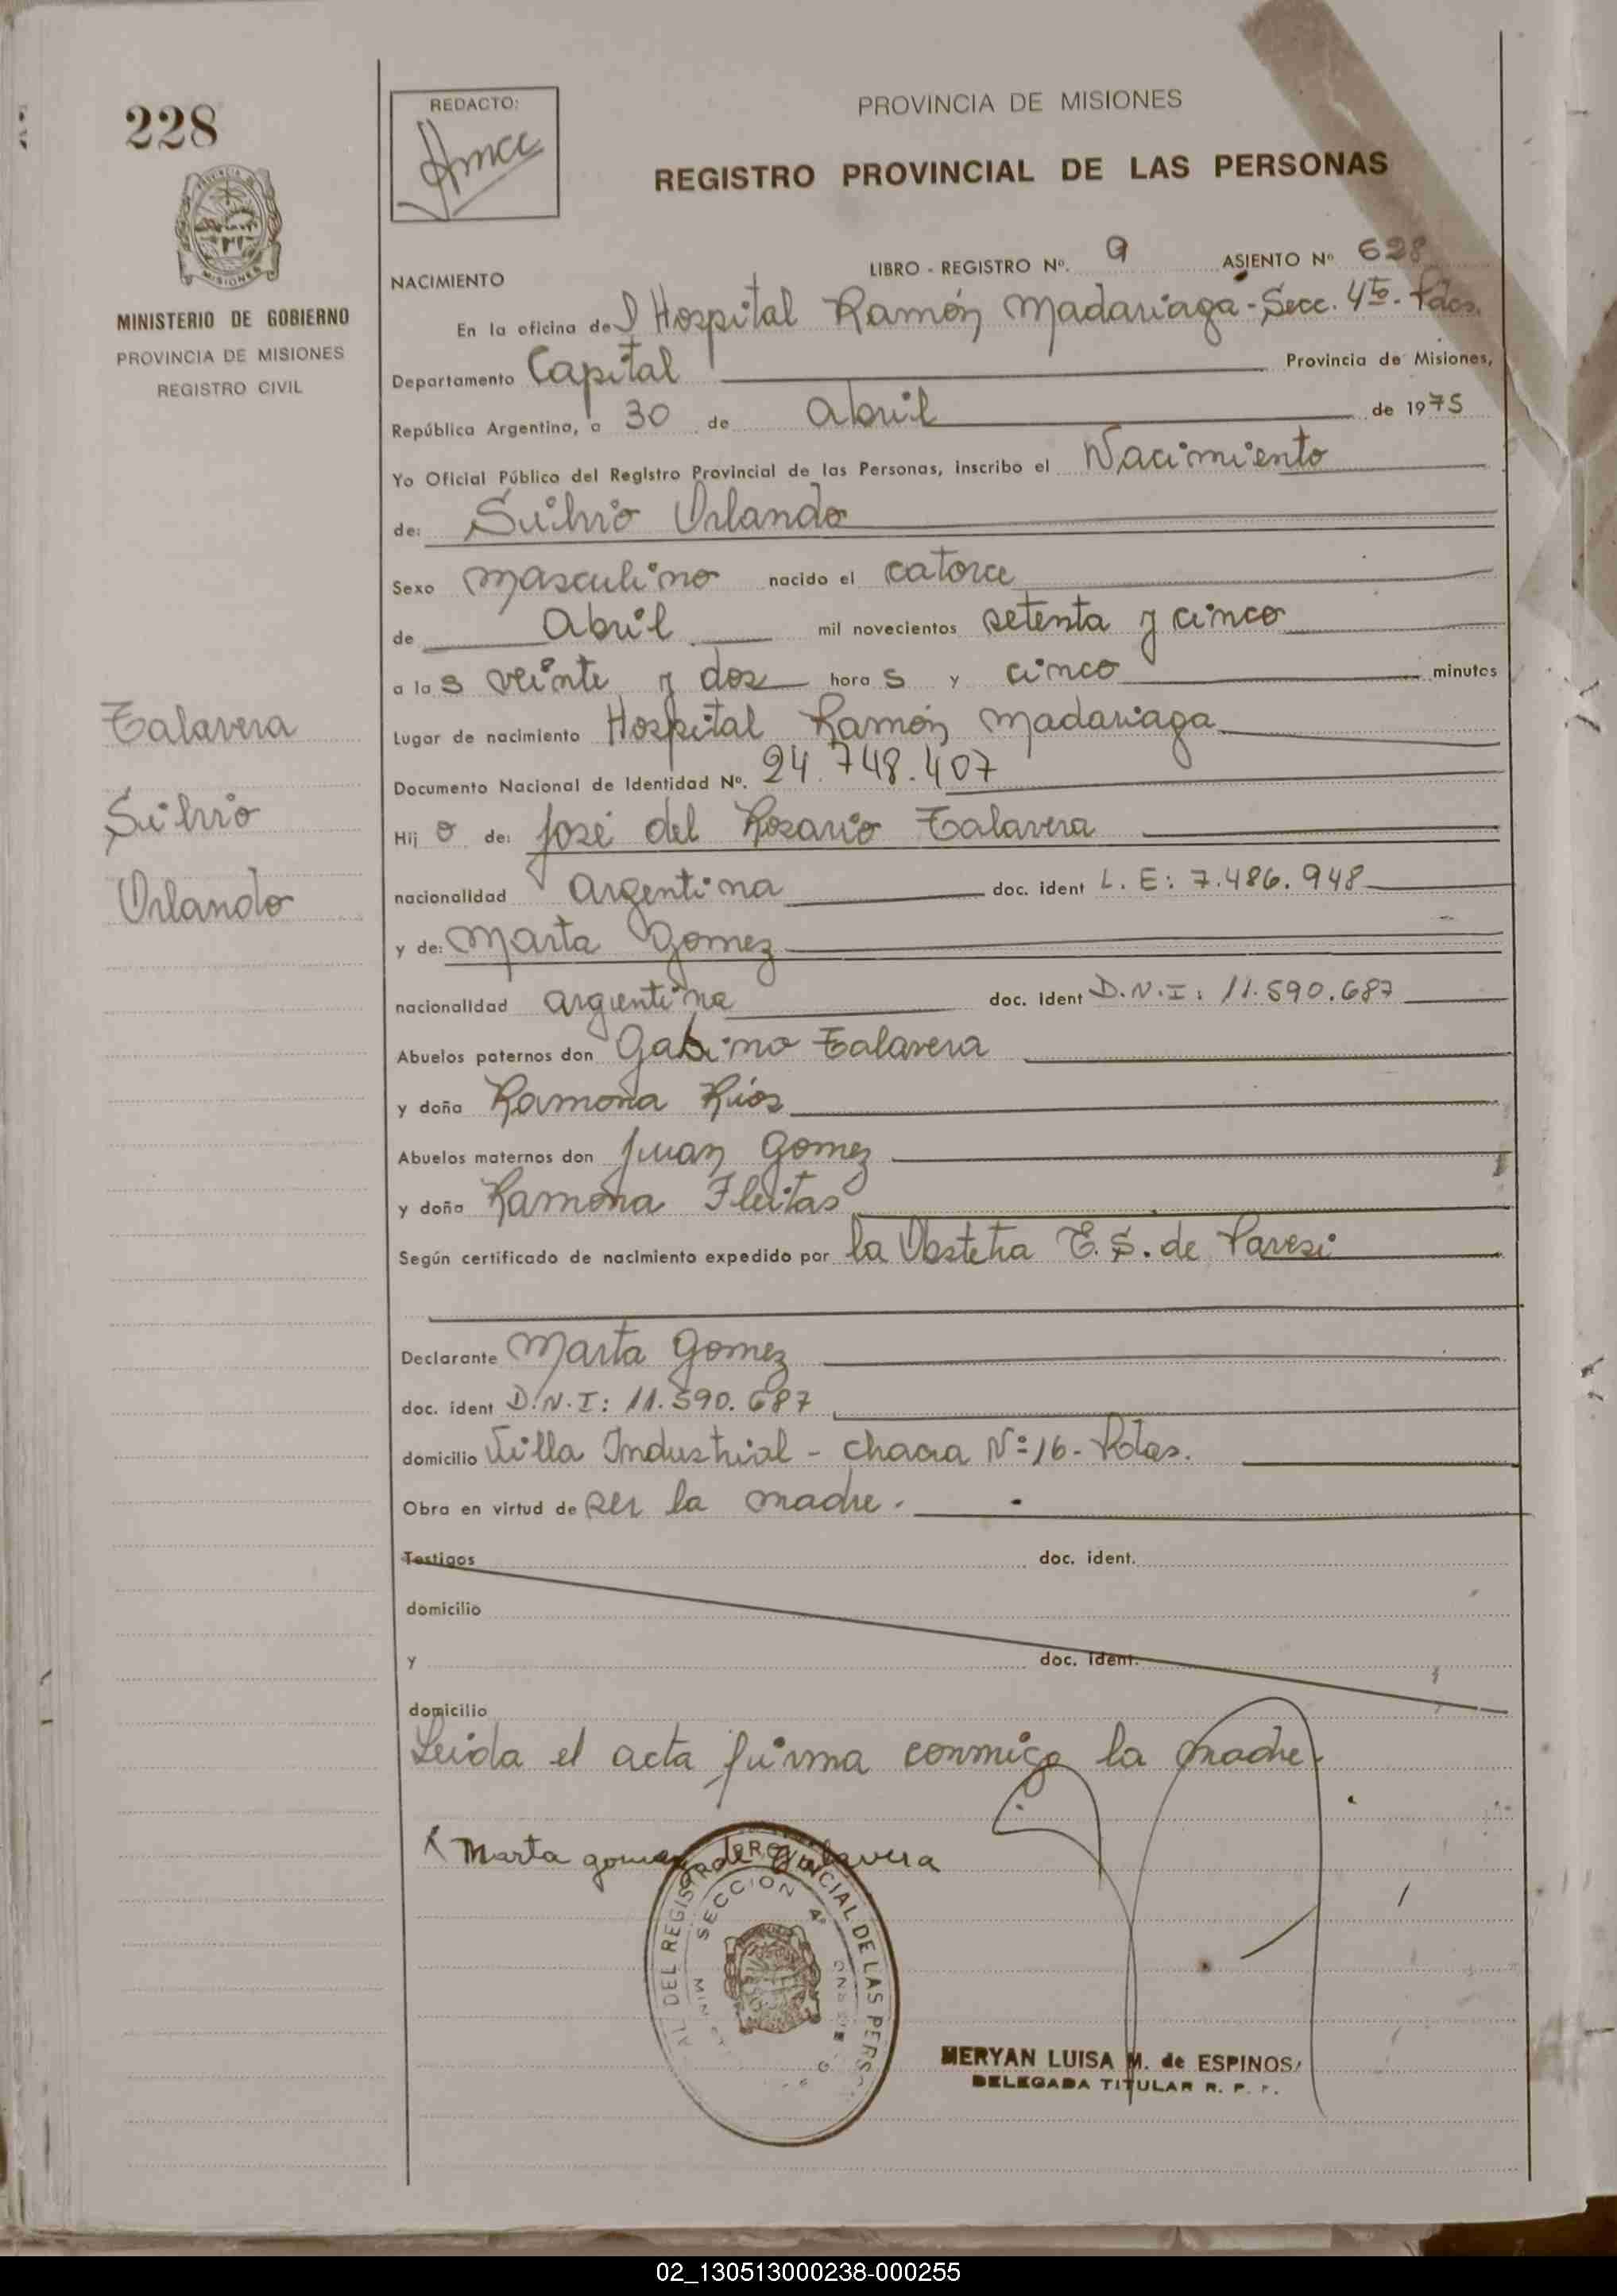 228
REDACTO:
PROVINCIA DE MISIONES
REGISTRO PROVINCIAL DE LAS PERSONAS
LIBRO - REGISTRO Nº. 9 ASIENTO Nº 628
NACIMIENTO
MISIONES
MINISTERIO DE GOBIERNO
PROVINCIA DE MISIONES
REGISTRO CIVIL
En la oficina del Hospital Ramón Madariaga - Secc. 4to - Pdas.
Departamento Capital Provincia de Misiones,
República Argentina, a 30 de Abril de 1975
Yo Oficial Público del Registro Provincial de las Personas, inscribo el Nacimiento
de: Silvio Orlando
Sexo masculino nacido el catorce
de Abril mil novecientos setenta y cinco
a las veinte y dos horas y cinco minutos
Lugar de nacimiento Hospital Ramón Madariaga
Documento Nacional de Identidad Nº. 24.748.407
Hijo de: José del Rosario Talavera
nacionalidad argentina doc. ident L. E: 7.486.948
y de: Marta Gomez
nacionalidad argentina doc. ident D.N.I: 11.590.687
Abuelos paternos don Gabino Talavera
y doña Ramona Rios
Abuelos maternos don Juan Gomez
y doña Ramona Fleitas
Según certificado de nacimiento expedido por la Obstetra E. S. de Paresi
Declarante Marta Gomez
doc. ident D.N.I: 11.590.687
domicilio Villa Industrial - chacra Nº 16 - Pdas.
Obra en virtud de ser la madre.
Testigos doc. ident.
domicilio
y doc. ident.
domicilio
Leida el acta firma conmigo la madre.
Talavera
Silvio
Orlando
Marta gomez de Talavera
DEL REGISTRO PROVINCIAL DE LAS PERS
SECCION 4º
MERYAN LUISA M. de ESPINOS
DELEGADA TITULAR R. P. P.
02_130513000238-000255